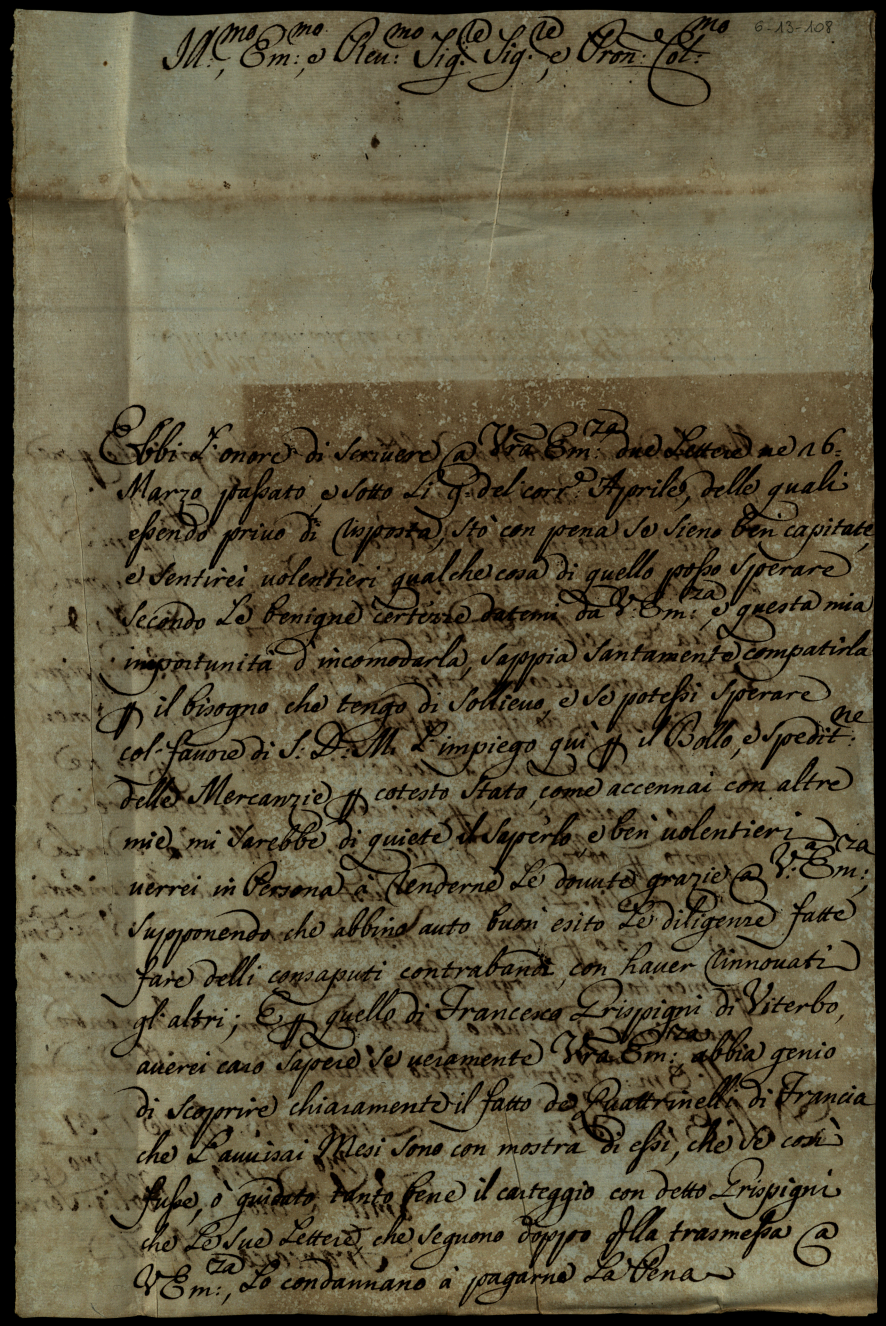 6-13-108
Ill:mo, Em:mo e Reu:mo Sig:re Sig:re, e Pron:e Col:mo
Ebbi l'onore di scriuere a Vra Em:za due Lettere ne 26:
Marzo passato, e sotto li 9: del corr:e Aprile, delle quali
essendo priuo di risposta, stò con pena se sieno ben capitate,
e sentirei uolentieri qualche cosa di quello posso sperare
secondo le benigne certezze datemi da V: Em:za, e questa mia
importunità d'incomodarla, sappia santamente compatirla
p il bisogno che tengo di sollieuo, e se potessi sperare
col fauore di S: D: M: l'impiego quì p il Bollo, e spedit:ne
delle Mercanzie p cotesto stato, come accennai con altre
mie, mi sarebbe di quiete il saperlo, e ben uolentieri
uerrei in Persona à renderne le douute grazie a V:a Em:za,
supponendo che abbino auto buon esito le diligenze fatte
fare delli consaputi contrabandi, con hauer rinnouati
gl'altri; E p quello di Francesco Grispigni di Viterbo,
auerei caro sapere se ueramente Vra Em:za abbia genio
di scoprire chiaramente il fatto de Quattrinelli di Francia
che l'auuisai Mesi sono con mostra di essi, che se così
fusse, ò guidato tanto bene il carteggio con detto Grispigni
che le sue Lettere, che seguono doppo qlla trasmessa a
V Em:za, lo condannano à pagarne la Pena